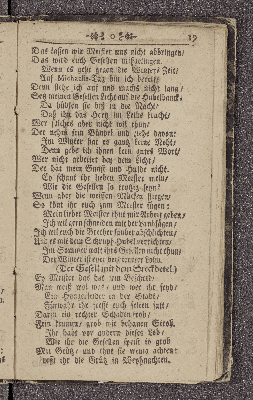 0 19
Das lassen wir Meister uns nicht abbringen/
Das wird euch Gesellen mißgelingen.
Wenn es geht gegen die Winters Zeit/
Auf Michaelis-Tag bin ich bereit/
Denn siehe ich auf und machs nicht lang/
Setz meinen Gesellen Licht auf die Hubelbanck.
Da die in die Nacht/
Daß ihm das Hertz im Leibe kracht/
Wer solches aber nicht will thun/
Der nehm sein Bündel und ziehe davon:
Im Winter hat es gantz keine Noht/
Denn gebe ich ihnen kein gutes Wort/
Wer nicht arbeitet bey dem Licht/
Der hat mein Gunst und Hulde nicht.
So schaut ihr lieben Meister mein/
Wie die Gesellen so trotzig seyn?
Wenn aber die weissen Mücken fliegen/
So thut ihr euch zum Meister fügen:
Mein lieber Meister thut mir Arbeit geben/
Ich will gern schneiden mit der Handsägen/
Ich will euch die Breter sauber abschlichten/
Und es mit dem Schrupf-Hubel verrichten/
Im Sommer wolt ihrs Gesellen nicht thun/
Der Winter ist euer
(Der Gesell mit dem Steckbeutel.)
Ey Meister das ist ein Bescheid/
Man weiß wol was/ und wer ihr seyd/
Ein in der Stadt/
Fürwahr ihr freßt euch selten satt/
Darzu ein rechter Schaden froh/
Fein krumm/ grob wie Stroh.
Ihr habt vor andern dieses Lob/
Wie ihr die Gesellen speist so grob
Mit Grütz/ und thut sie wenig achten:
eßt ihr die Grütz in Weyhnachten.